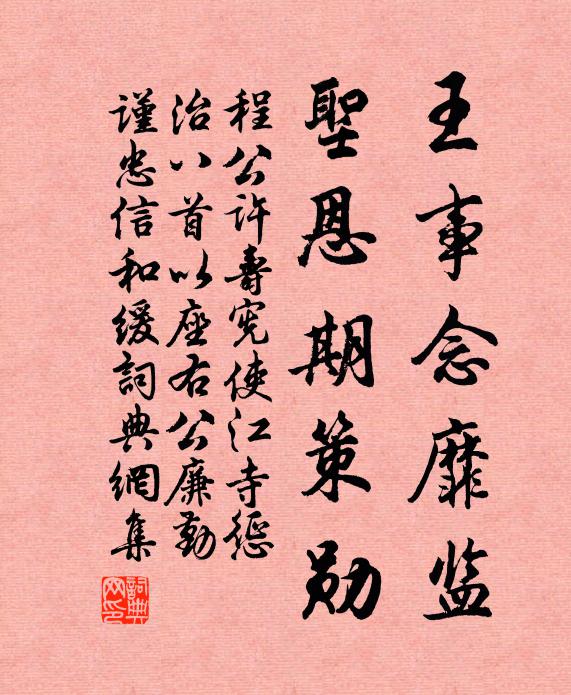 王事念靡监
聖恩期策勋
程公许壽宪使江寺丞
治八首以座右公廉勤
謹忠信和缓詞典網集
詞典网印